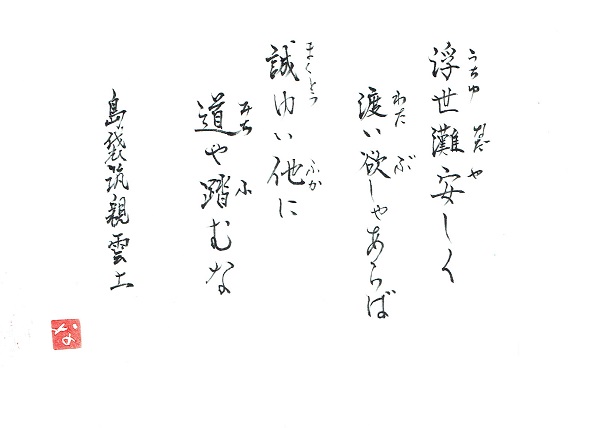 うちゆ なだ や
浮世灘安しく
わた ぶ
渡い欲しゃあらば
まくとぅ ふか
誠ゆい他に
みち ふ
道や踏むな
島袋筑親雲上
な